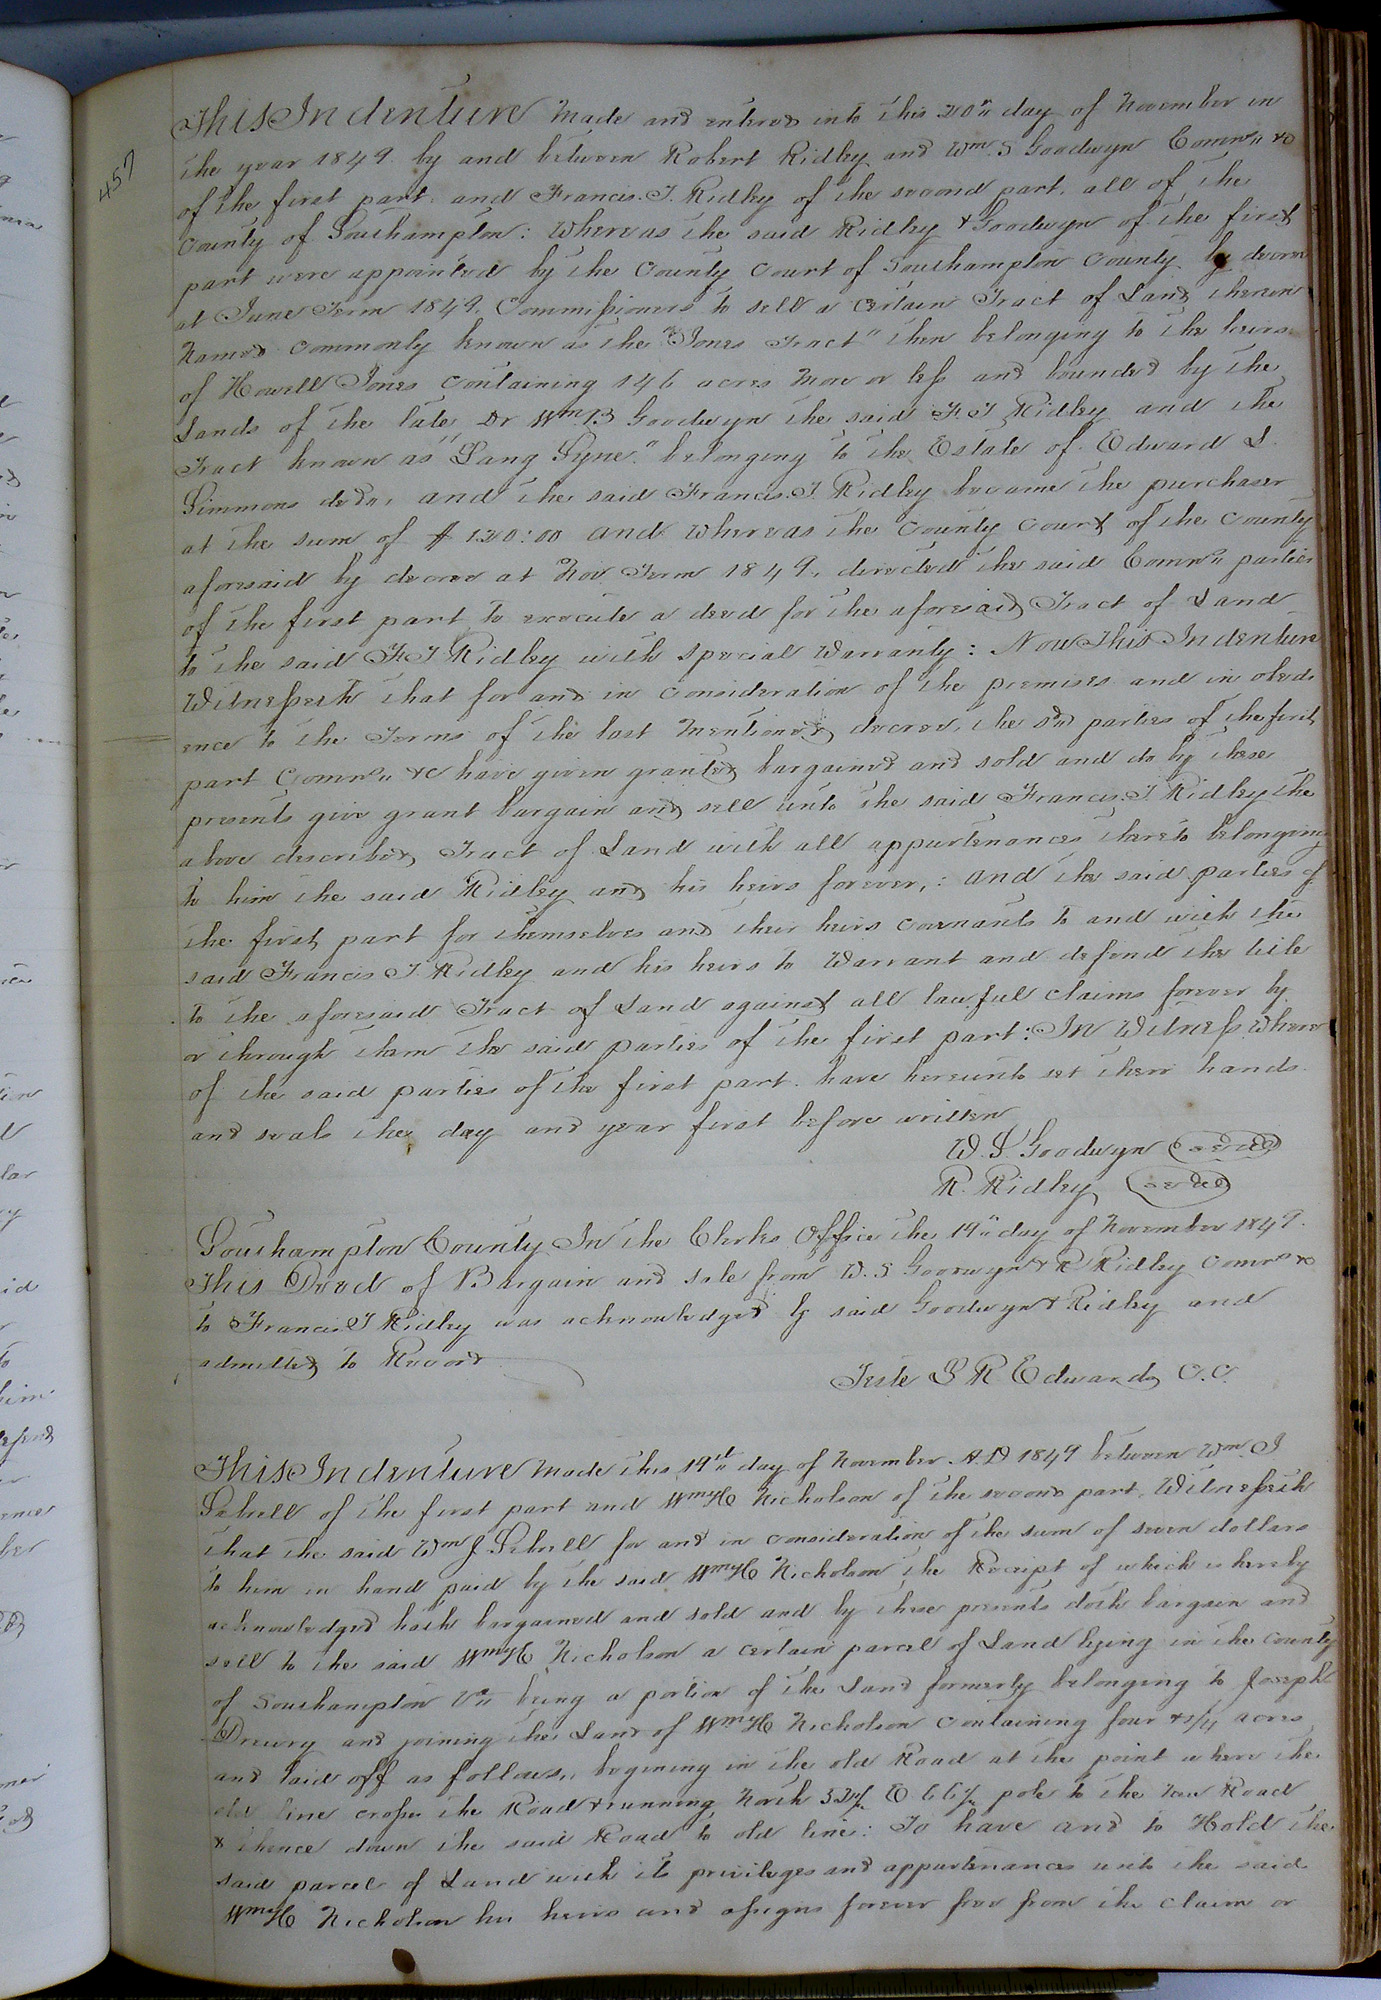 457
This Indenture Made and entered into this 20" day of November in
the year 1849. by and between Robert Ridley and Wm. S Goodwyn Comrs. &c
of the first part and Francis. T. Ridley of the second part, all of the
County of Southampton: Whereas the said Ridley & Goodwyn of the first
part were appointed by the County Court of Southampton County by decree
at June Term 1849. Commissioners to sell a certain Tract of Land therein
Named commonly known as the "Jones Tract" then belonging to the heirs
of Howell Jones containing 146 acres More or less and bounded by the
Lands of the late Dr Wm. B Goodwyn the said F. T Ridley and the
Tract known as "Lang Syne" belonging to the Estate of Edward S.
Simmons decd., and the said Francis. T. Ridley became the purchaser
at the sum of $ 120:00 and whereas the County Court of the County
aforesaid by decree at Nov. Term 1849, directed the said Comrs. parties
of the first part to execute a deed for the aforesaid Tract of Land
to the said F. T Ridley with special Warranty: Now This Indenture
Witnesseth that for and in consideration of the premises and in obedi
ence to the Terms of the last Mentioned decree, the sd. parties of the first
part Comrs. &c have given granted bargained and sold and do by these
presents give grant bargain and sell unto the said Francis. T Ridley the
above described Tract of Land with all appurtenances thereto belonging
to him the said Ridley and his heirs forever,: and the said parties of
the first part for themselves and their heirs covenants to and with the
said Francis T. Ridley and his heirs to Warrant and defend the title
to the aforesaid Tract of Land against all lawful claims forever by
or through them the said parties of the first part: In Witness Where
of the said parties of the first part have hereunto set their hands
and seals the day and year first before written
W. S. Goodwyn (seal)
R. Ridley (seal)
Southampton County In the Clerks Office the 19" day of November 1849.
This Deed of Bargain and sale from W. S Goodwyn & R Ridley Comrs &c
to Francis T Ridley was acknowledged by said Goodwyn & Ridley and
admitted to Record
Teste L R Edwards C. C.
This Indenture Made this 19th day of November A. D 1849 between Wm. J
Sebrell of the first part and Wm H Nicholson of the second part, Witnesseth
that the said Wm J Sebrell for and in consideration of the sum of seven dollars
to him in hand paid by the said Wm H Nicholson the Receipt of which is hereby
acknowledged hath bargained and sold and by these presents doth bargain and
sell to the said Wm H Nicholson a certain parcel of Land lying in the County
of Southampton Va. being a portion of the Land formerly belonging to Joseph
Drewry and joining the Land of Wm H Nicholson containing four & 1/4 acres
and laid off as follows, begining in the old Road at the point where the
old line cross the Road & running North E poles to the new Road
& thence down the said Road to old line: To have and to Hold the
said parcel of Land with its privileges and appurtenances unto the said
Wm H Nicholson his heirs and assigns forever free from the claim or